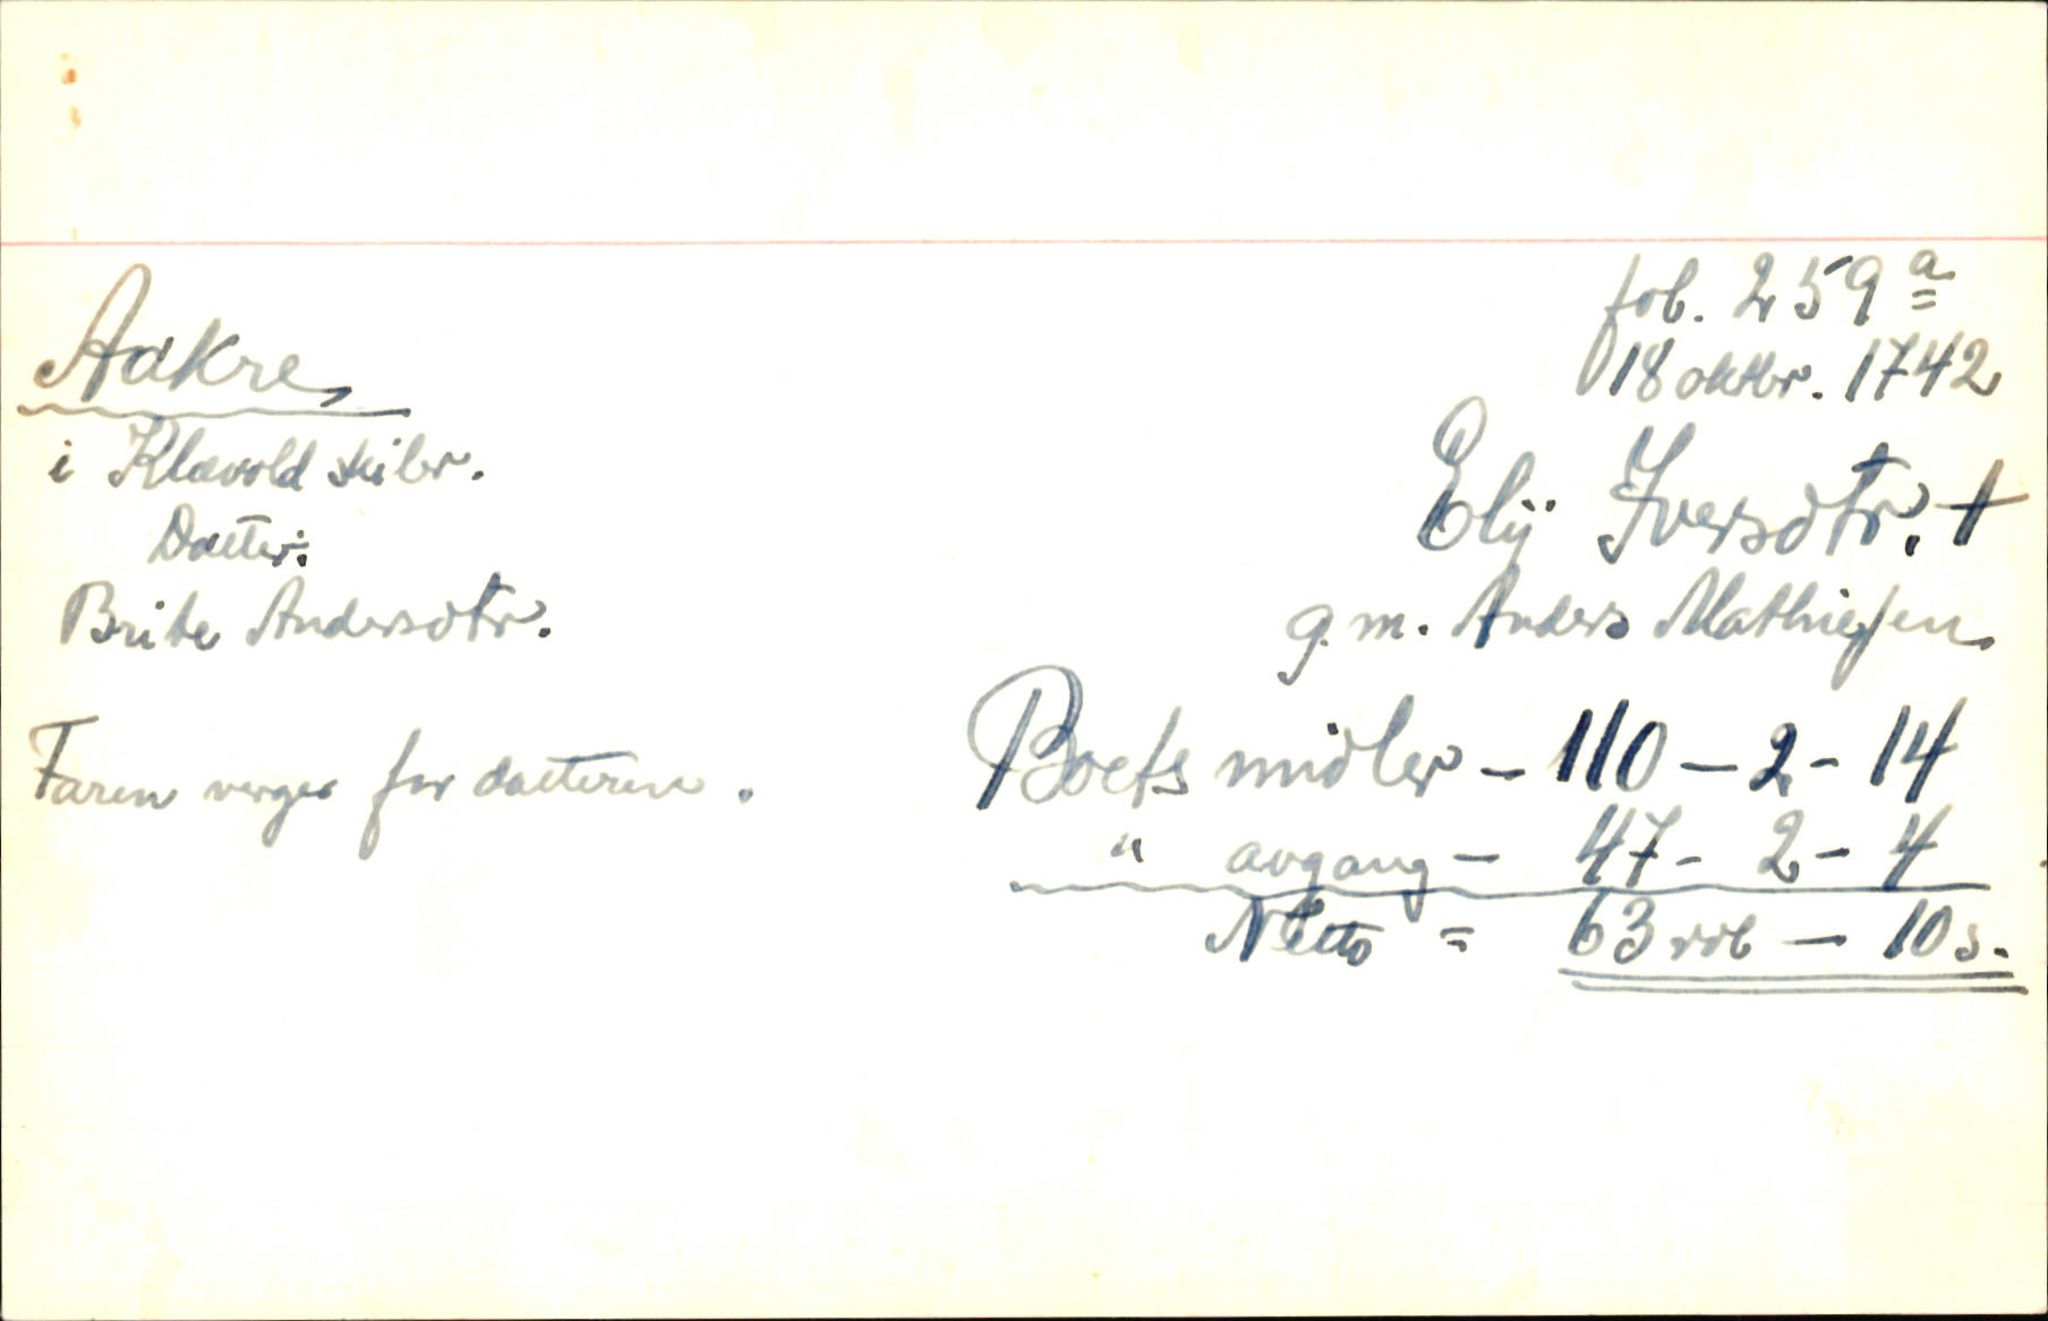 fol. 259 a
18 oktbr. 1742
Aakre,
i Klævold skibr.
Elij Iversdtr. +
Datter:
Brite Andersdtr.
g. m. Anders Mathiesen.
Boets midler - 110 - 2 - 14
Faren verge for datteren.
" avgang - 47 - 2 - 4
Netto = 63 rdl - 10 s.